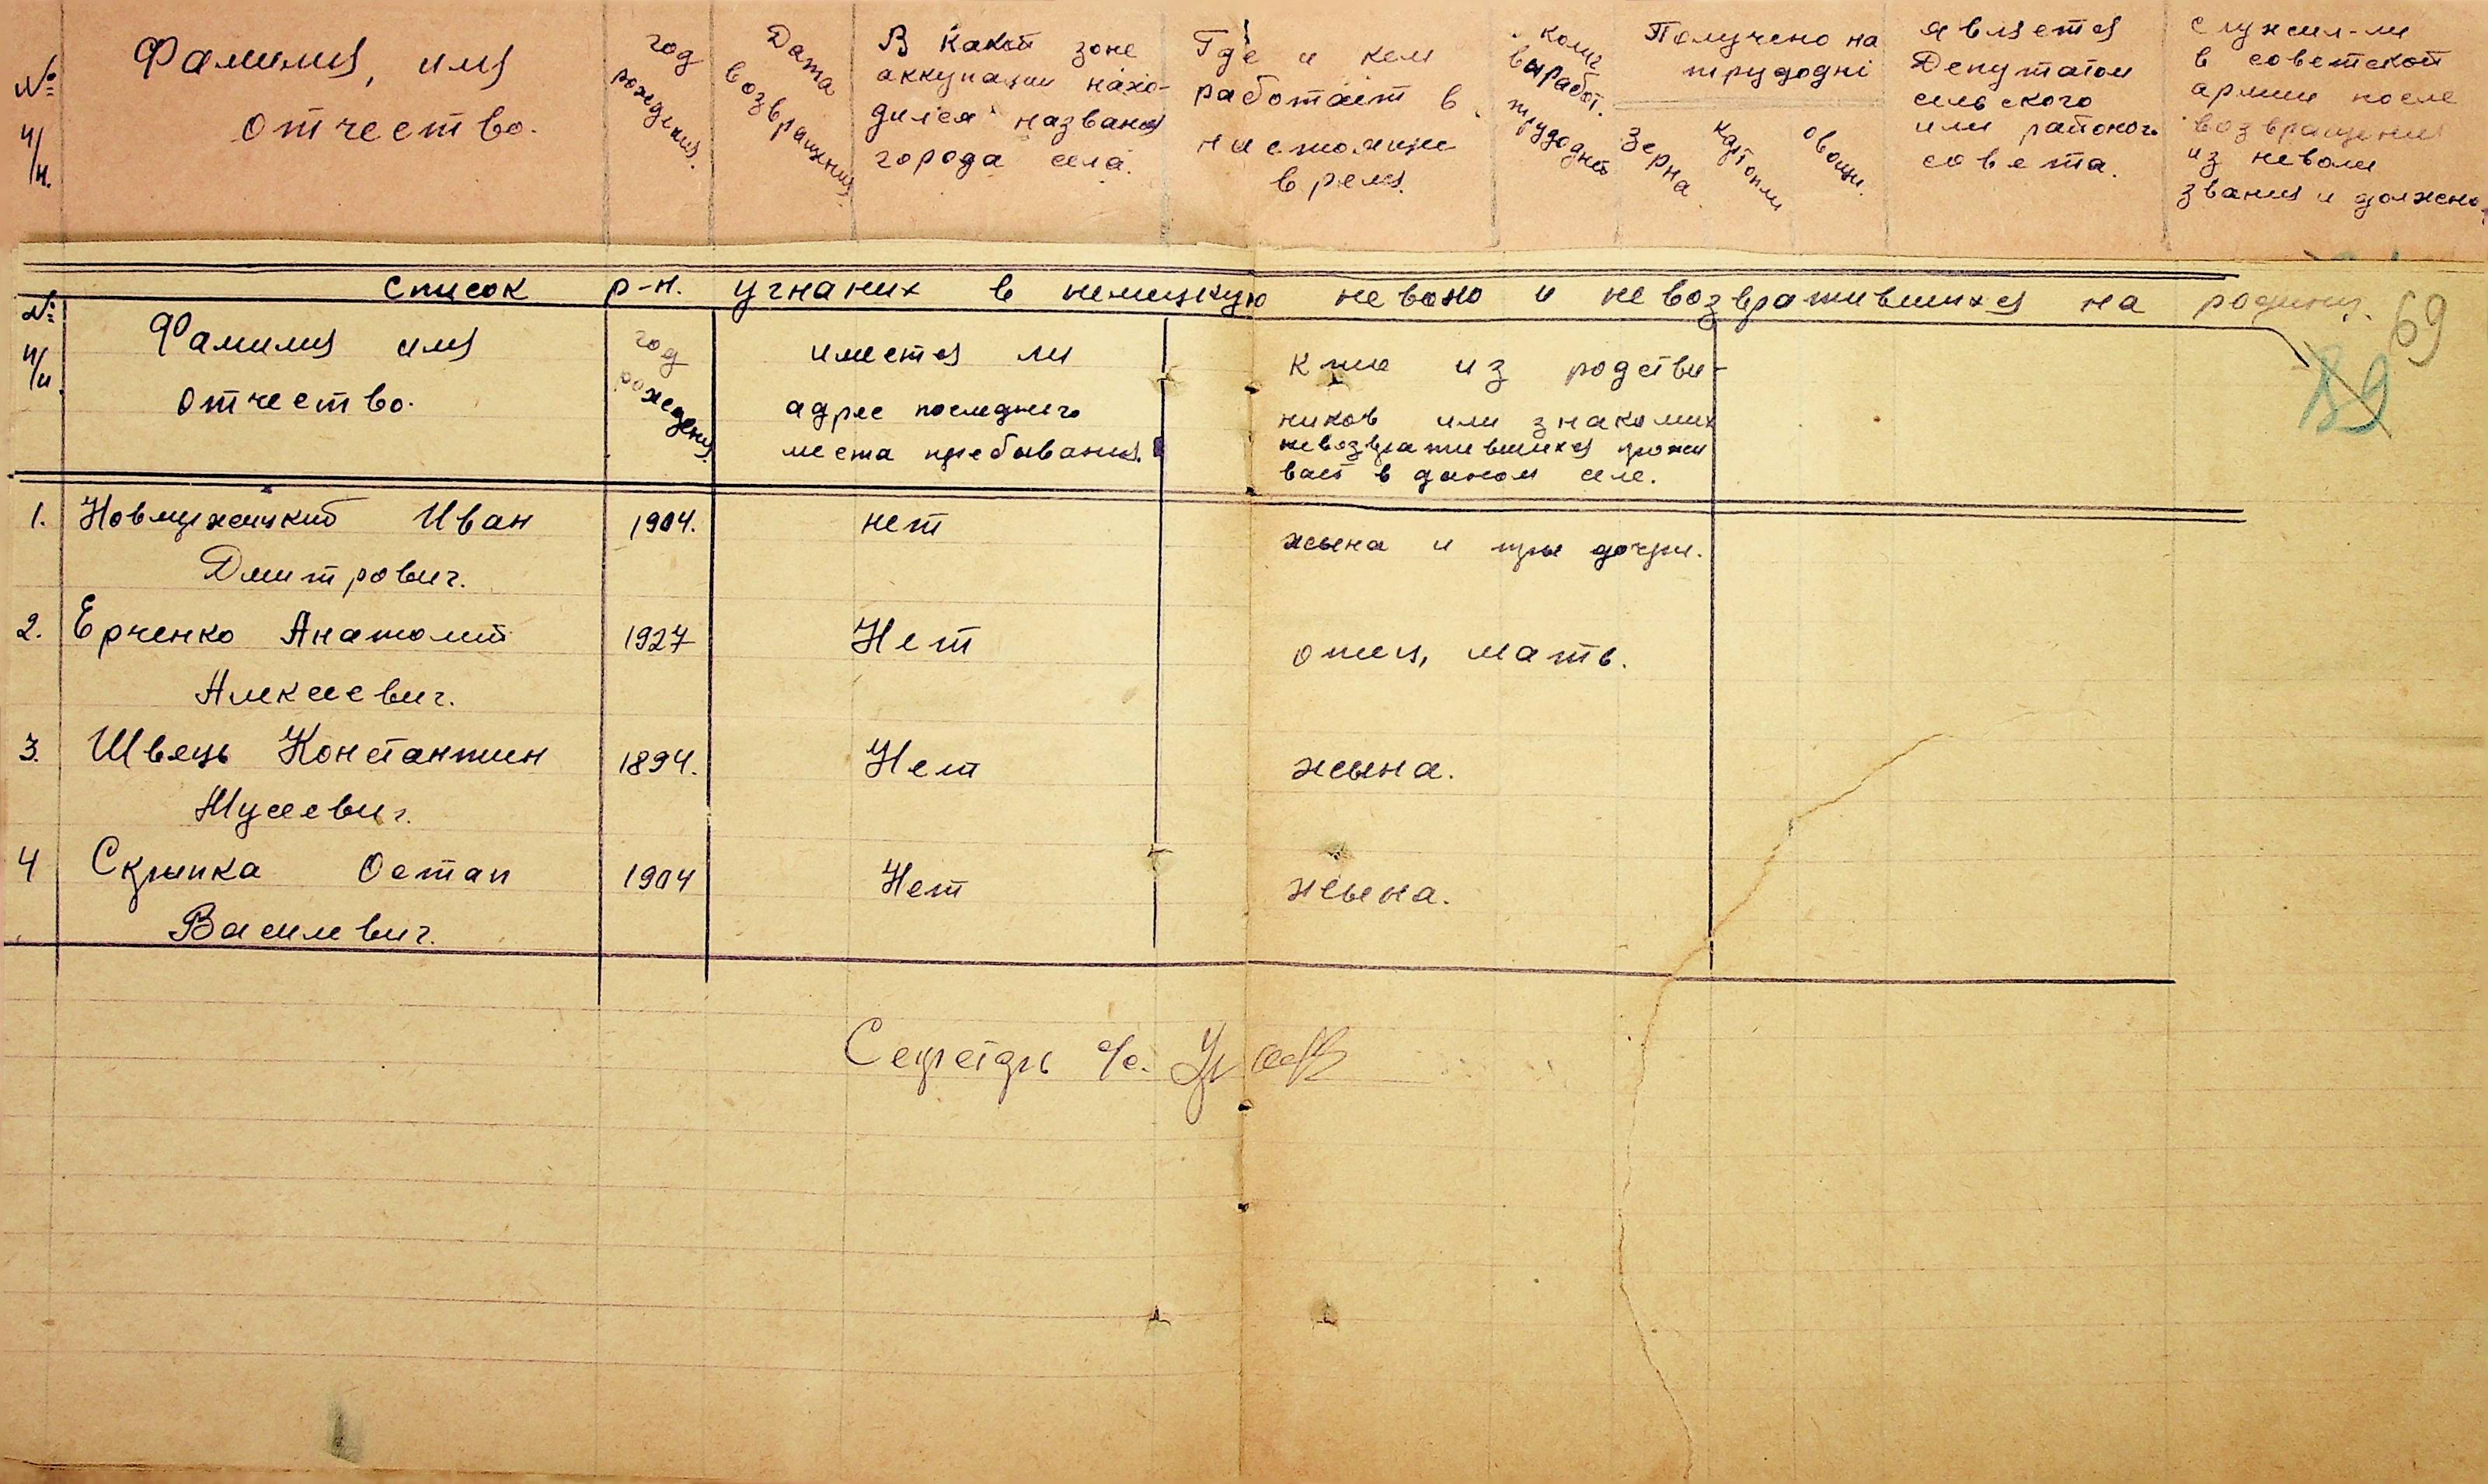 № п/п.
Фамилия, имя
отчество.
год
рождения.
Дата
возвращения.
В какой зоне
аккупации нахо-
дился названия
города села.
Где и кем
работает в
настоящие
время.
колич.
выработ.
трудодней
Получено на
трудодні
Зерна
картопли
овощи.
является
Депутатом
сельского
или районого
совета.
служил-ли
в советской
армии после
возвращения
из неволи
звания и должено.
список р-н. угнаних в немицкую неволю и невозвратившихся на родину.
69
89
№ п/п.
Фамилия имя
отчество.
год
рождения.
имеется ли
адрес последнего
места пребывания.
кто из родстви-
ников или знакомих
невозвратившихся прожи
вает в даном селе.
1. Новмержицкий Иван 1904. нет жына и три дочри.
Дмитрович.
2. Ерченко Анатолий 1927 Нет отец, мать.
Алексеевич.
3. Швець Константин 1894. Нет жына.
Мусеевич.
4 Скрыпка Остап 1904 Нет жына.
Василевич.
Секретарь с/с.